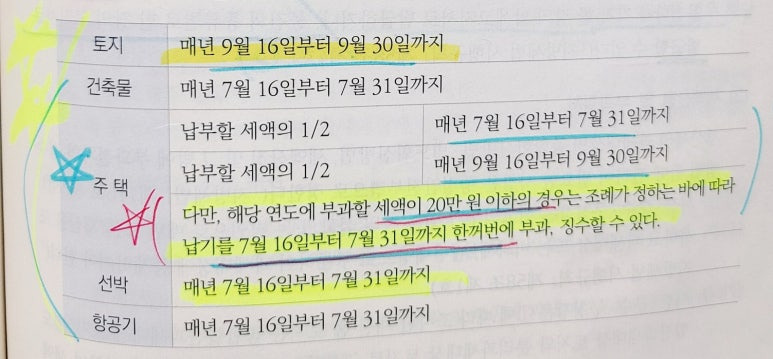 토지 매년 9월 16일부터 9월 30일까지
건축물 매년 7월 16일부터 7월 31일까지
주택
납부할 세액의 1/2 매년 7월 16일부터 7월 31일까지
납부할 세액의 1/2 매년 9월 16일부터 9월 30일까지
다만, 해당 연도에 부과할 세액이 20만 원 이하의 경우는 조례가 정하는 바에 따라
납기를 7월 16일부터 7월 31일까지 한꺼번에 부과, 징수할 수 있다.
선박 매년 7월 16일부터 7월 31일까지
항공기 매년 7월 16일부터 7월 31일까지